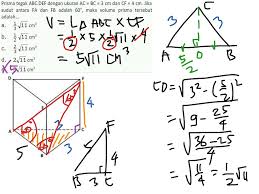 Prisma tegak ABC.DEF dengan ukuran AC = BC = 3 cm dan CF = 4 cm. Jika
sudut antara FA dan FB adalah 60°, maka volume prisma tersebut
adalah...
a. √11 cm³
b. √11 cm³
c. √11 cm³
d. 2√11 cm³
5 √11 cm³
V = L△ABC × CF
= 1/2 × 5 × 1/2 √11 × 4
= 5√11 cm³
C
3
3
A
5/2
O
B
CD = √3² - (5/2)²
= √9 - 25/4
= √36-25/4
= √11/4 = 1/2 √11
60°
5
3
4
F
5
4
B
3
C